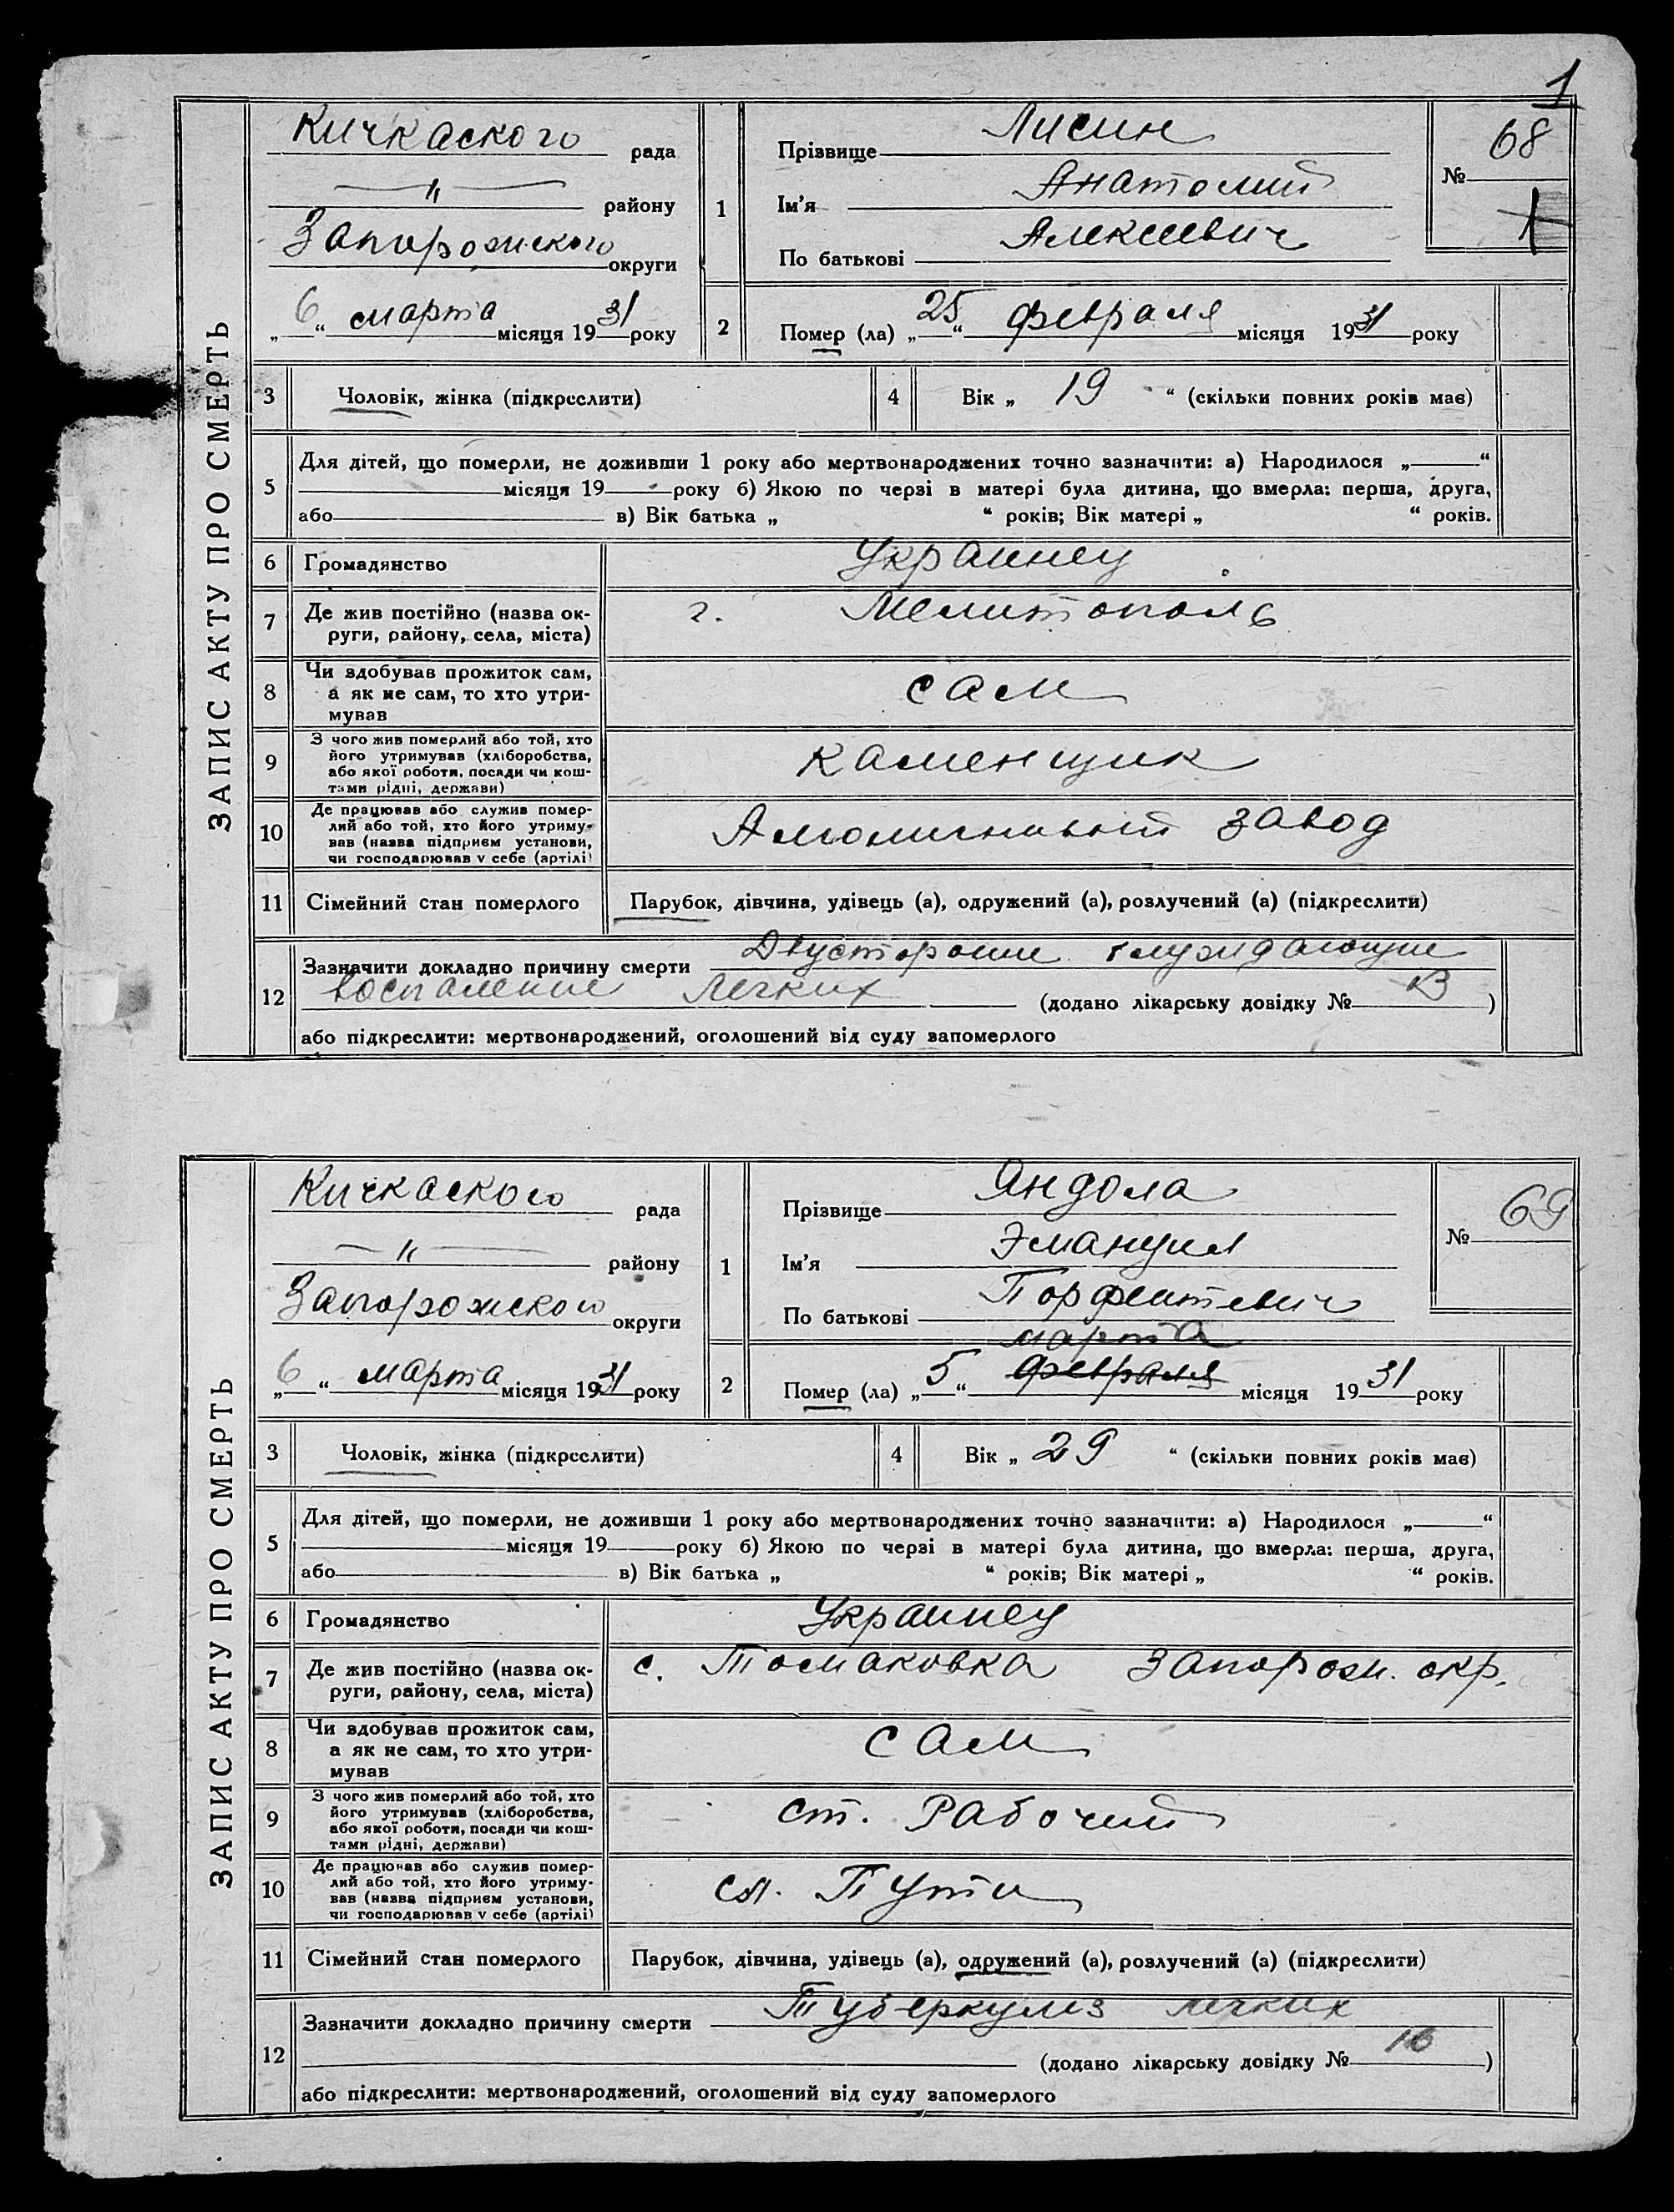 1
ЗАПИС АКТУ ПРО СМЕРТЬ
Кичкаского рада
—〃— району
Запорожского округи
„6“ марта місяця 1931 року
1
Прізвище Лисин
Ім’я Анатолий
По батькові Алексеевич
№ 68
2 Помер (ла) „25“ февраля місяця 1931 року
3 Чоловік, жінка (підкреслити)
4 Вік „ 19 “ (скільки повних років має)
5 Для дітей, що померли, не доживши 1 року або мертвонароджених точно зазначити: а) Народилося „ “
місяця 19 року б) Якою по черзі в матері була дитина, що вмерла: перша, друга,
або в) Вік батька „ “ років; Вік матері „ “ років.
6 Громадянство Украинец
7 Де жив постійно (назва ок-
руги, району, села, міста) г. Мелитополь
8 Чи здобував прожиток сам,
а як не сам, то хто утри-
мував сам
9 З чого жив померлий або той, хто
його утримував (хліборобства,
або якої роботи, посади чи кош-
тами рідні, держави) каменщик
10 Де працював або служив помер-
лий або той, хто його утриму-
вав (назва підприєм установи,
чи господарював у себе (артілі) завод
11 Сімейний стан померлого Парубок, дівчина, удівець (а), одружений (а), розлучений (а) (підкреслити)
12 Зазначити докладно причину смерти
воспаление легких (додано лікарську довідку № )
або підкреслити: мертвонароджений, оголошений від суду запомерлого
ЗАПИС АКТУ ПРО СМЕРТЬ
Кичкаского рада
—〃— району
Запорожского округи
„6“ марта місяця 1931 року
1
Прізвище Яндола
Ім’я Эмануил
По батькові
№ 69
марта
2 Помер (ла) „5“ февраля місяця 1931 року
3 Чоловік, жінка (підкреслити)
4 Вік „ 29 “ (скільки повних років має)
5 Для дітей, що померли, не доживши 1 року або мертвонароджених точно зазначити: а) Народилося „ “
місяця 19 року б) Якою по черзі в матері була дитина, що вмерла: перша, друга,
або в) Вік батька „ “ років; Вік матері „ “ років.
6 Громадянство Украинец
7 Де жив постійно (назва ок-
руги, району, села, міста) с. Томаковка Запорож. окр.
8 Чи здобував прожиток сам,
а як не сам, то хто утри-
мував сам
9 З чого жив померлий або той, хто
його утримував (хліборобства,
або якої роботи, посади чи кош-
тами рідні, держави) ст. Рабочий
10 Де працював або служив помер-
лий або той, хто його утриму-
вав (назва підприєм установи,
чи господарював у себе (артілі) сл. Пути
11 Сімейний стан померлого Парубок, дівчина, удівець (а), одружений (а), розлучений (а) (підкреслити)
12 Зазначити докладно причину смерти Туберкулиз легких
(додано лікарську довідку № 16 )
або підкреслити: мертвонароджений, оголошений від суду запомерлого